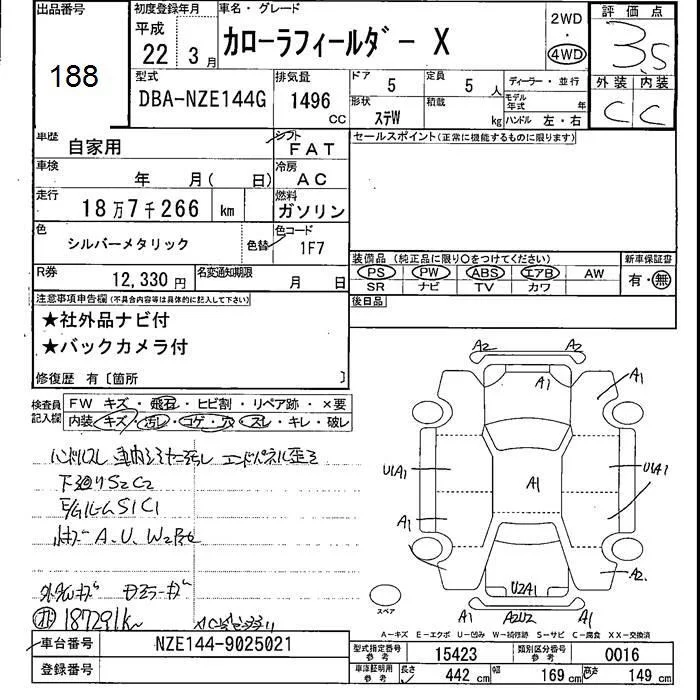 出品番号
188
初度登録年月
平成
22 3月
車名・グレード
カローラフィールダー X
2WD
・
4WD
評価点
3.5
外装 内装
C C
型式
DBA-NZE144G
排気量
1496 CC
ドア 5
定員 5 人
形状 ステW
積載 kg
ディーラー・並行
モデル年式 年
ハンドル 左・右
車歴 自家用
シフト FAT
セールスポイント(正常に機能するものに限ります)
車検 年 月( 日)
冷房 AC
走行 18万7千266 km
燃料 ガソリン
色 シルバーメタリック 色替
色コード 1F7
装備品(純正品に限り○をつけてください)
新車保証書
PS PW ABS エアB AW
SR ナビ TV カワ
有・無
R券 12,330円
名変通知期限 月 日
後日品
注意事項申告欄(不具合内容等は具体的に記入して下さい)
★社外品ナビ付
★バックカメラ付
修復歴 有〔箇所 〕
検査員記入欄
FW キズ・飛石・ヒビ割・リペア跡・×要
内装 キズ・汚レ・コゲ・穴・スレ・キレ・破レ
ハンドルスレ エンドパネル歪ミ
下廻りS2C2
E/GルームS1C1
A.U.W2
187291km
A2 A2
A1 A1
U1A1 U1A1
A1
A1 A1
A2
U2A1
A1 A2U2 A1
スペア
A-キズ E-エクボ U-凹み W-補修跡 S-サビ C-腐食 XX-交換済
車台番号 NZE144-9025021
登録番号
型式指定番号 参考 15423
類別区分番号 参考 0016
車庫証明用 参考
長さ 442 cm 幅 169 cm 高さ 149 cm